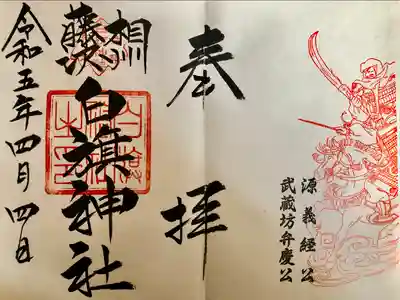 奉拝
源義経公
武蔵坊弁慶公
相州
藤沢
白旗神社
令和五年四月四日